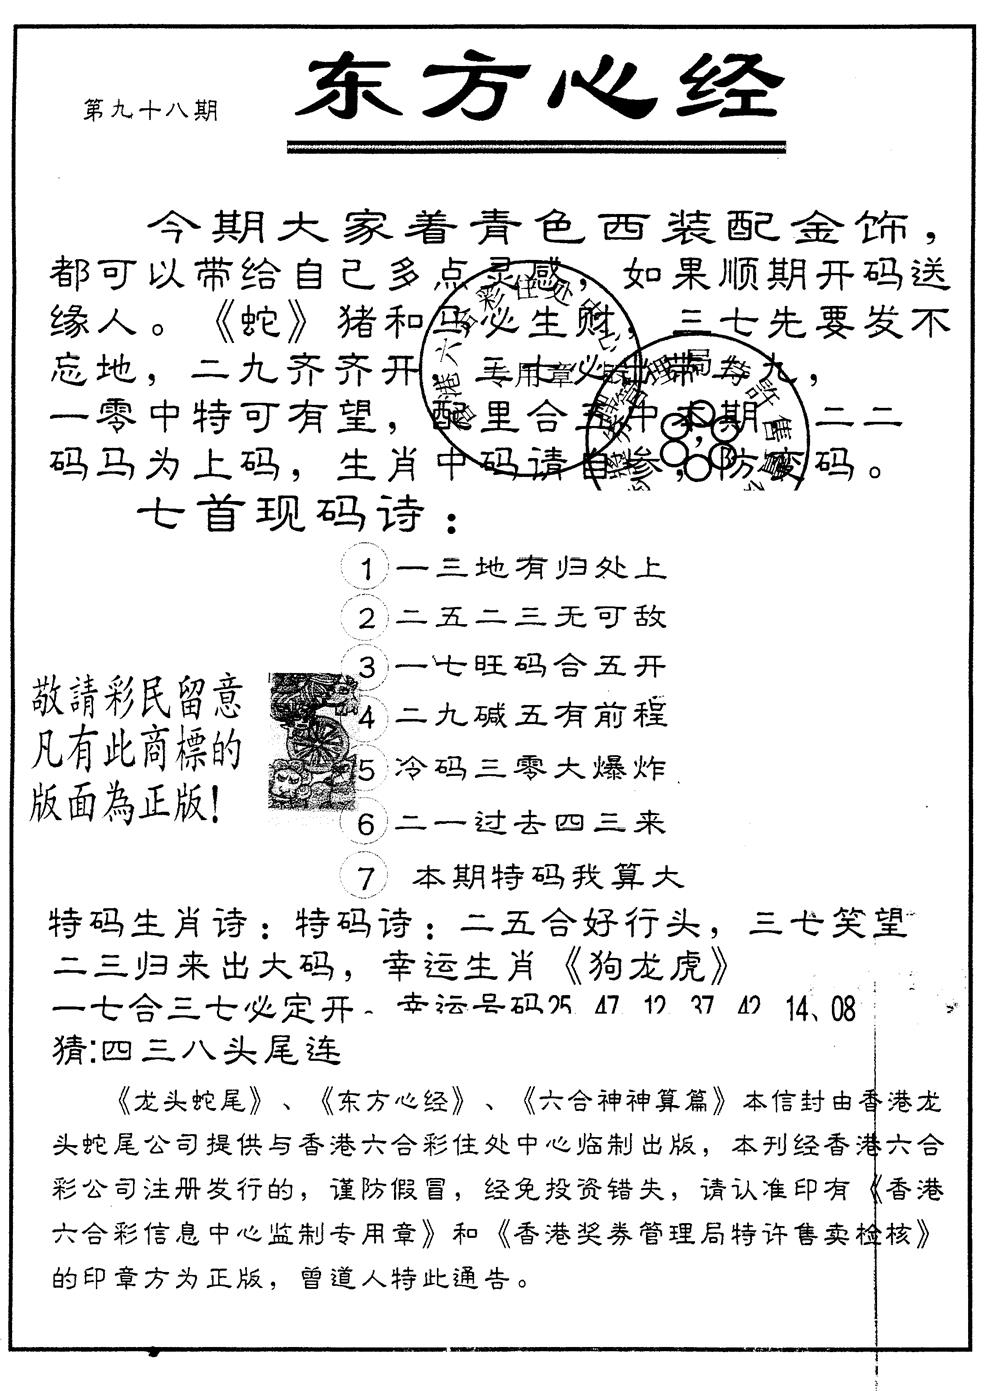 东方心经
第九十八期
今期大家着青色西装配金饰，
都可以带给自己多点灵感，如果顺期开码送
缘人。《蛇》猪和马必生财，三七先要发不
忘地，二九齐齐开，三七必 带二九，
一零中特可有望，配里合五中本期，二二
码马为上码，生肖中码请自参，防变码。
七首现码诗：
1 一三地有归处上
2 二五二三无可敌
3 一七旺码合五开
4 二九碱五有前程
5 冷码三零大爆炸
6 二一过去四三来
7 本期特码我算大
敬請彩民留意
凡有此商標的
版面為正版！
特码生肖诗：特码诗：二五合好行头，三七笑望
二三归来出大码，幸运生肖《狗龙虎》
一七合三七必定开。幸运号码25 47 12 37 42 14、08
猜:四三八头尾连
《龙头蛇尾》、《东方心经》、《六合神神算篇》本信封由香港龙
头蛇尾公司提供与香港六合彩住处中心临制出版，本刊经香港六合
彩公司注册发行的，谨防假冒，经免投资错失，请认准印有《香港
六合彩信息中心监制专用章》和《香港奖券管理局特许售卖检核》
的印章方为正版，曾道人特此通告。
香港六合彩住处中心
专用章
獎券管理局特許售賣